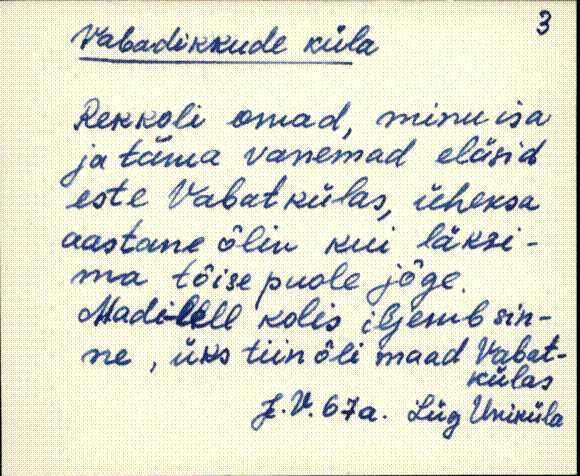 3
Vabadikkude küla
Rekkoli omad, minu isa
ja täma vanemad eläsid
este Vabatkülas, üheksa
aastane õlin kui läksi-
ma tõise puole jõge.
Madilell kolis iljemb sin-
ne, üks tiin õli maad Vabat-
külas
J. V. 67a. Lüg Uniküla